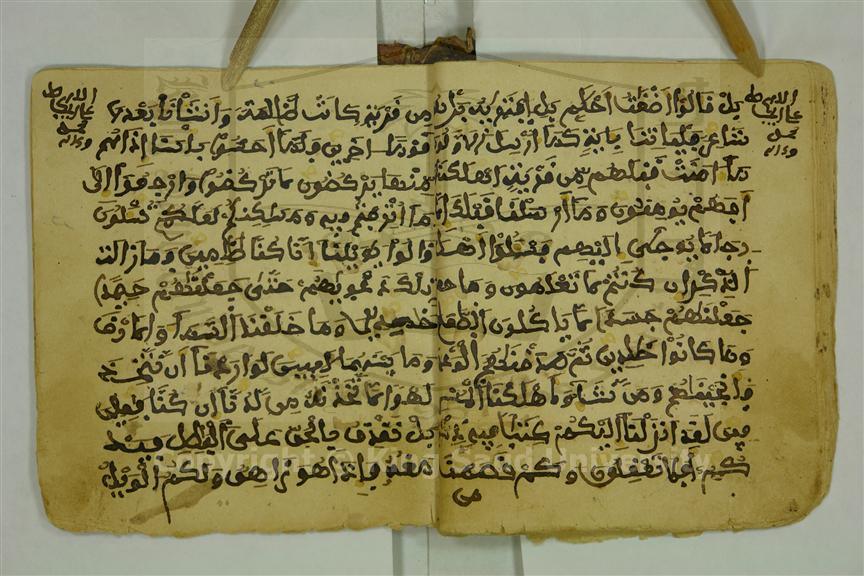 بل قالوا اضغث احلم بل افتريه بل
شاعر فلياتنا باية كما ارسل الاولو
ما امنت قبلهم من قرية اهلكنا
افهم يومنون وما ارسلنا قبلك الا
رجالا يوحى اليهم فسئلوا اهل
الذكر ان كنتم لا تعلمون وما
جعلنهم جسدا لا ياكلون الطعام
وما كانوا خلدين ثم صدقنهم الوعد
فانجينهم ومن نشاء واهلكنا المسر
فين لقد انزلنا اليكم كتبا فيه
كم افلا تعقلون وكم قصمنا
من
من قرية كانت ظالمة وانشانا بعدها
قوما اخرين فلما احسوا باسنا اذا هم
منها يركضون لا تركضوا وارجعوا الى
ما اترفتم فيه ومسكنكم لعلكم تسئلون
قالوا يويلنا انا كنا ظلمين فما زالت
تلك دعويهم حتى جعلنهم حصيدا
خمدين وما خلقنا السما والارض
وما بينهما لعبين لو اردنا ان نتخذ
لهوا لاتخذنه من لدنا ان كنا فعلين
بل نقذف بالحق على البطل فيد
مغه فاذا هو زاهق ولكم الويل
Copyright © King Saud University